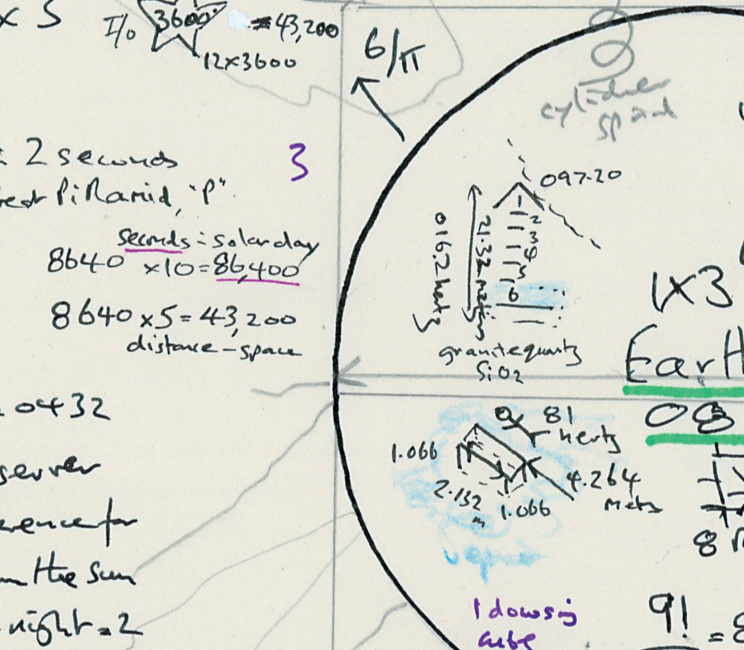 x 5
I/o
3600
= 43,200
12x3600
6/π
cylinder
2 seconds
3
Pi Ramid, "P"
seconds = solar day
8640 x10 = 86,400
8640 x 5 = 43,200
distance - space
0432
server
erence for
the sun
night = 2
097.20
1
2
3
4
5
6
21.32 meters
016.2 hertz
granite quartz
SiO2
1x3
Eart
08
81
hertz
1.066
2.132
m
1.066
4.264
mets
8
1 dowsing
cube
9! =